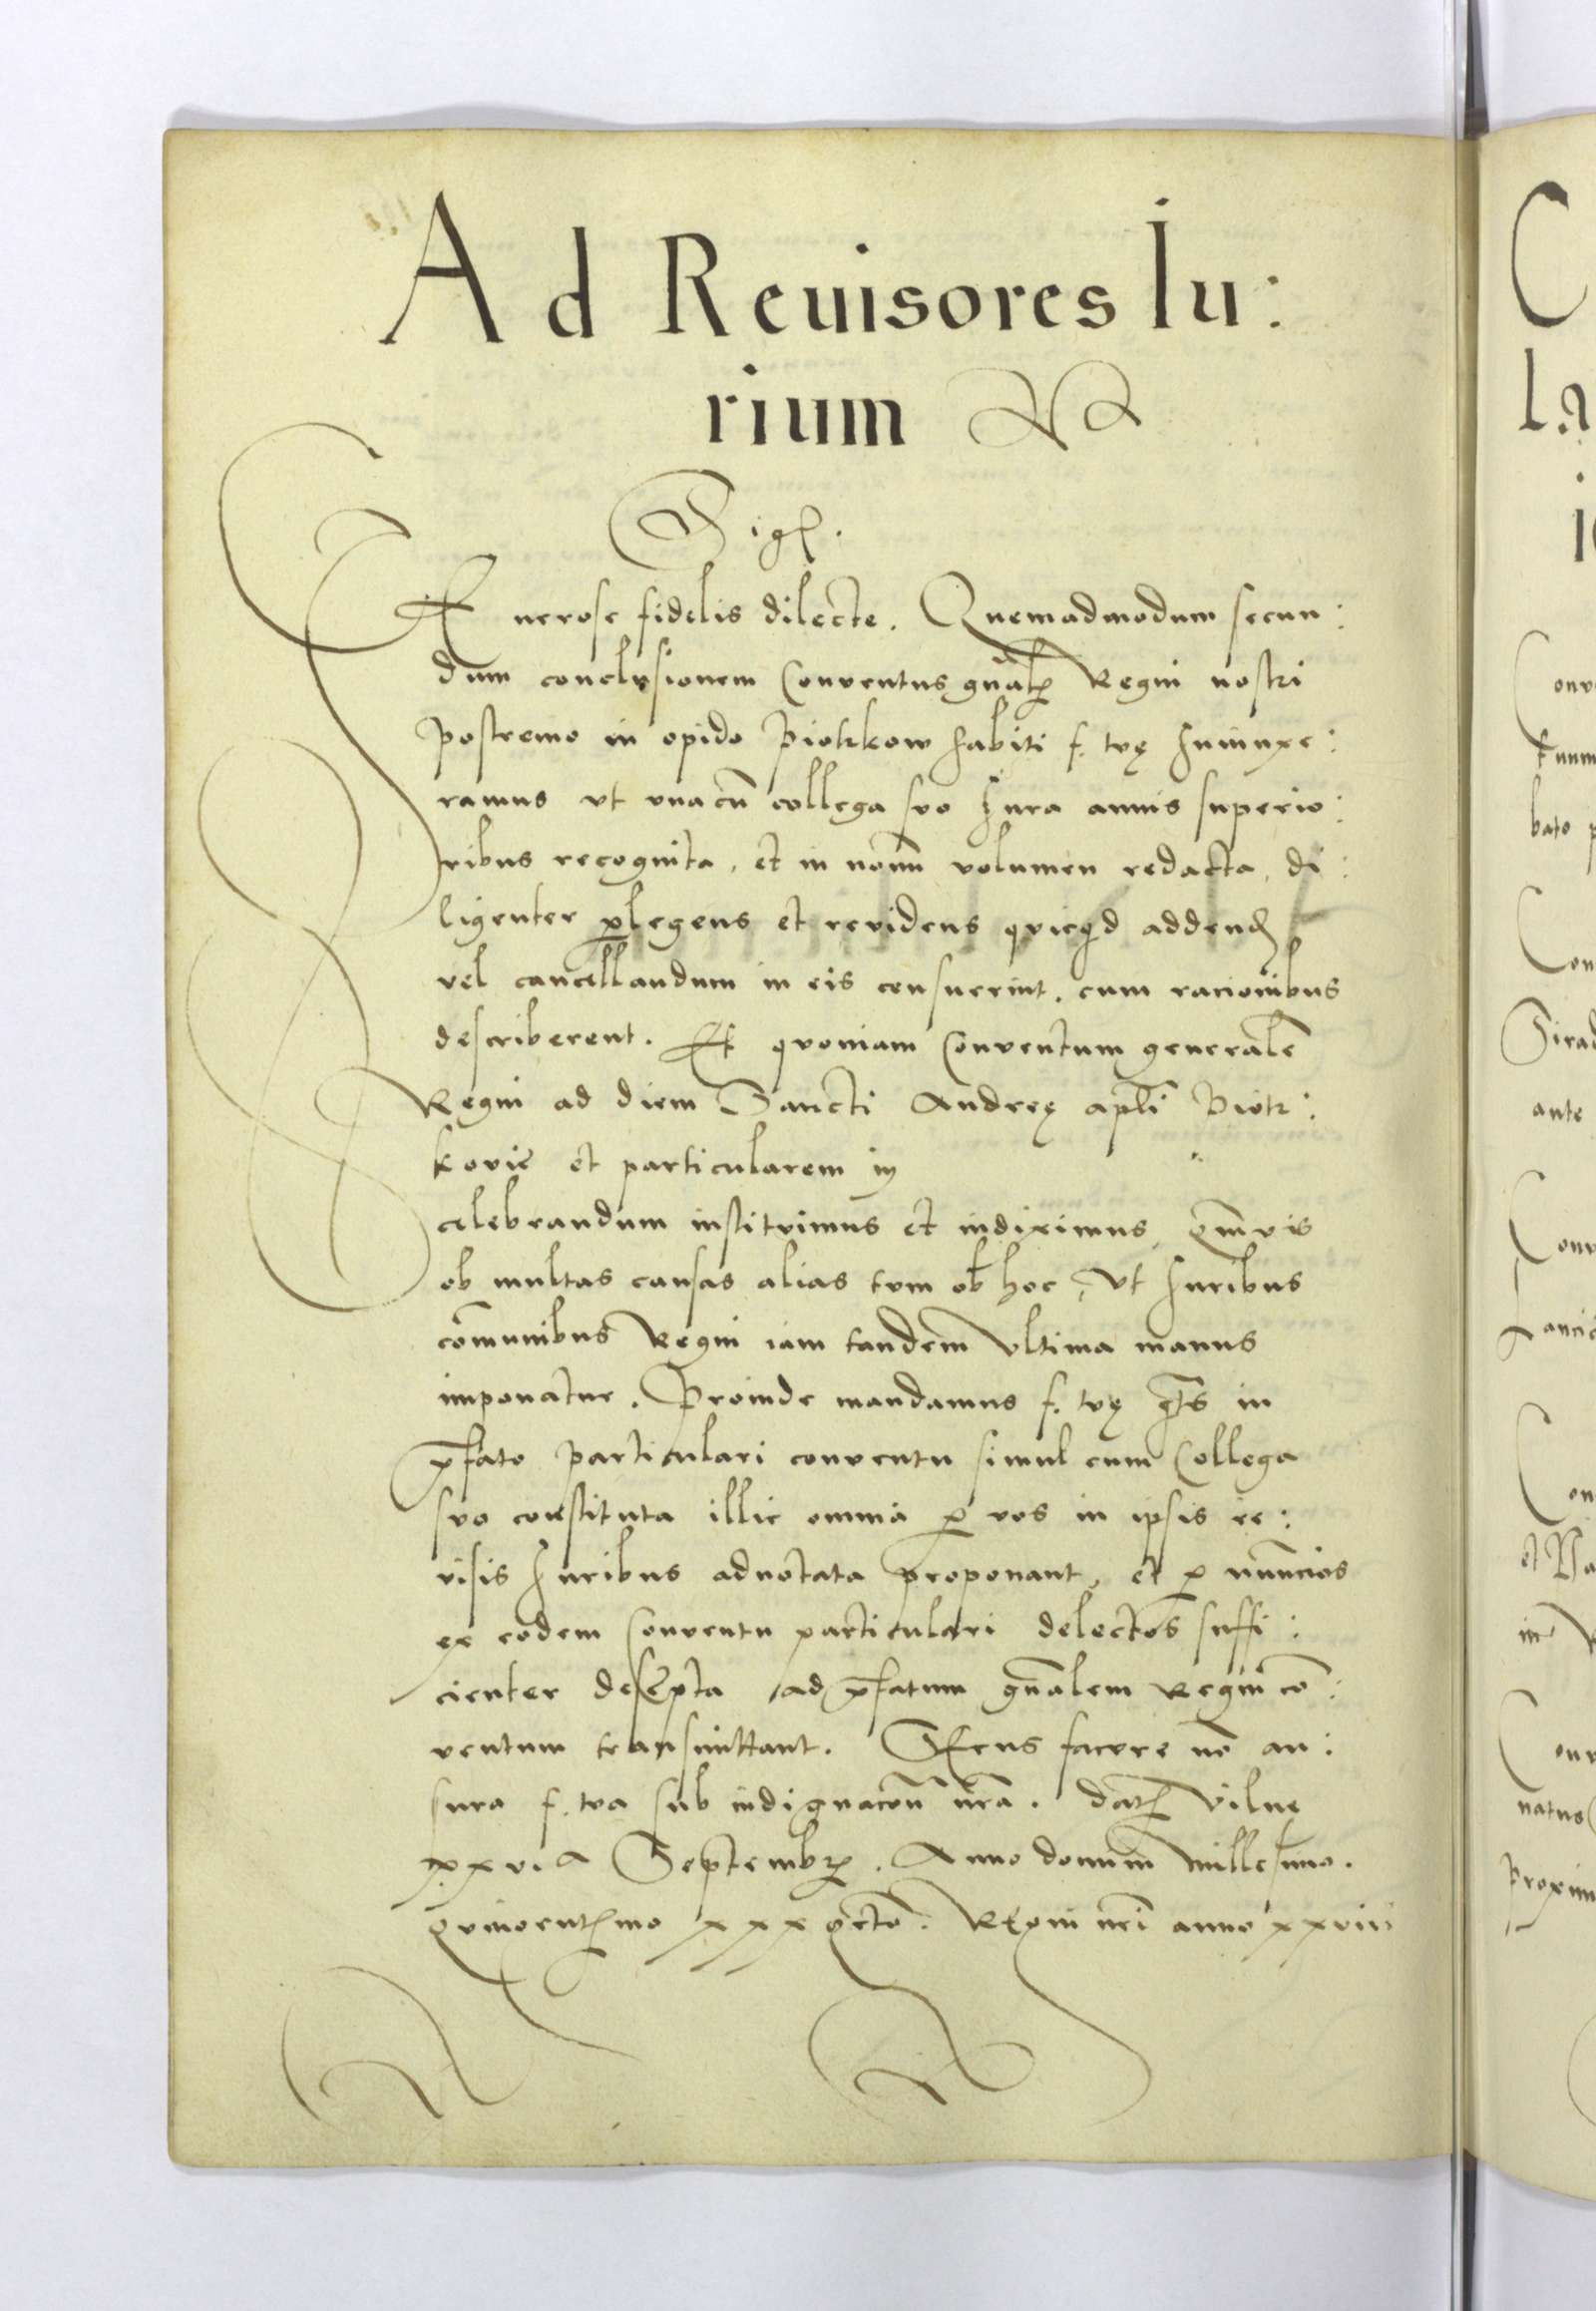 Ad Reuisores Iu:
rium
Sigs.
Generose fidelis dilecte. Quemadmodum secun:
dum conclusionem Conventus gnalis Regni nostri
postremo in opido Piotrkow habiti f. tvę Iniunxe:
ramus vt vnacu collega svo Iura annis superio:
ribus recognita, et in nouu volumen redacta, di:
ligenter plegens et revidens quicqd addend
vel cancellandum in eis censuerint, cum racionibus
describerent. Et quoniam Conventum generale
Regni ad diem Sancti Andreę apli Piotr:
kovię et particularem in
celebrandum instituimus et indiximus, qmvis
ob multas causas alias tum ob hoc, vt Iuribus
comunibus Regni iam tandem vltima manus
imponatur. Proinde mandamus f. tvę qts in
pfato particulari conventu simul cum Collega
svo constituta illic omnia p vos in ipsis re:
visis Iuribus adnotata proponant, et p nuncios
ex eodem Conventu particulari delectos suffi:
cienter descripta ad pfatum gnalem Regni co:
ventum transmittant. Secus facere no au:
sura f. tva sub indignacou nra. Dat Vilnę
xxvi.a Septembr. Anno domini millesimo.
quingentmo xxx octo. Regni nri anno xxviii